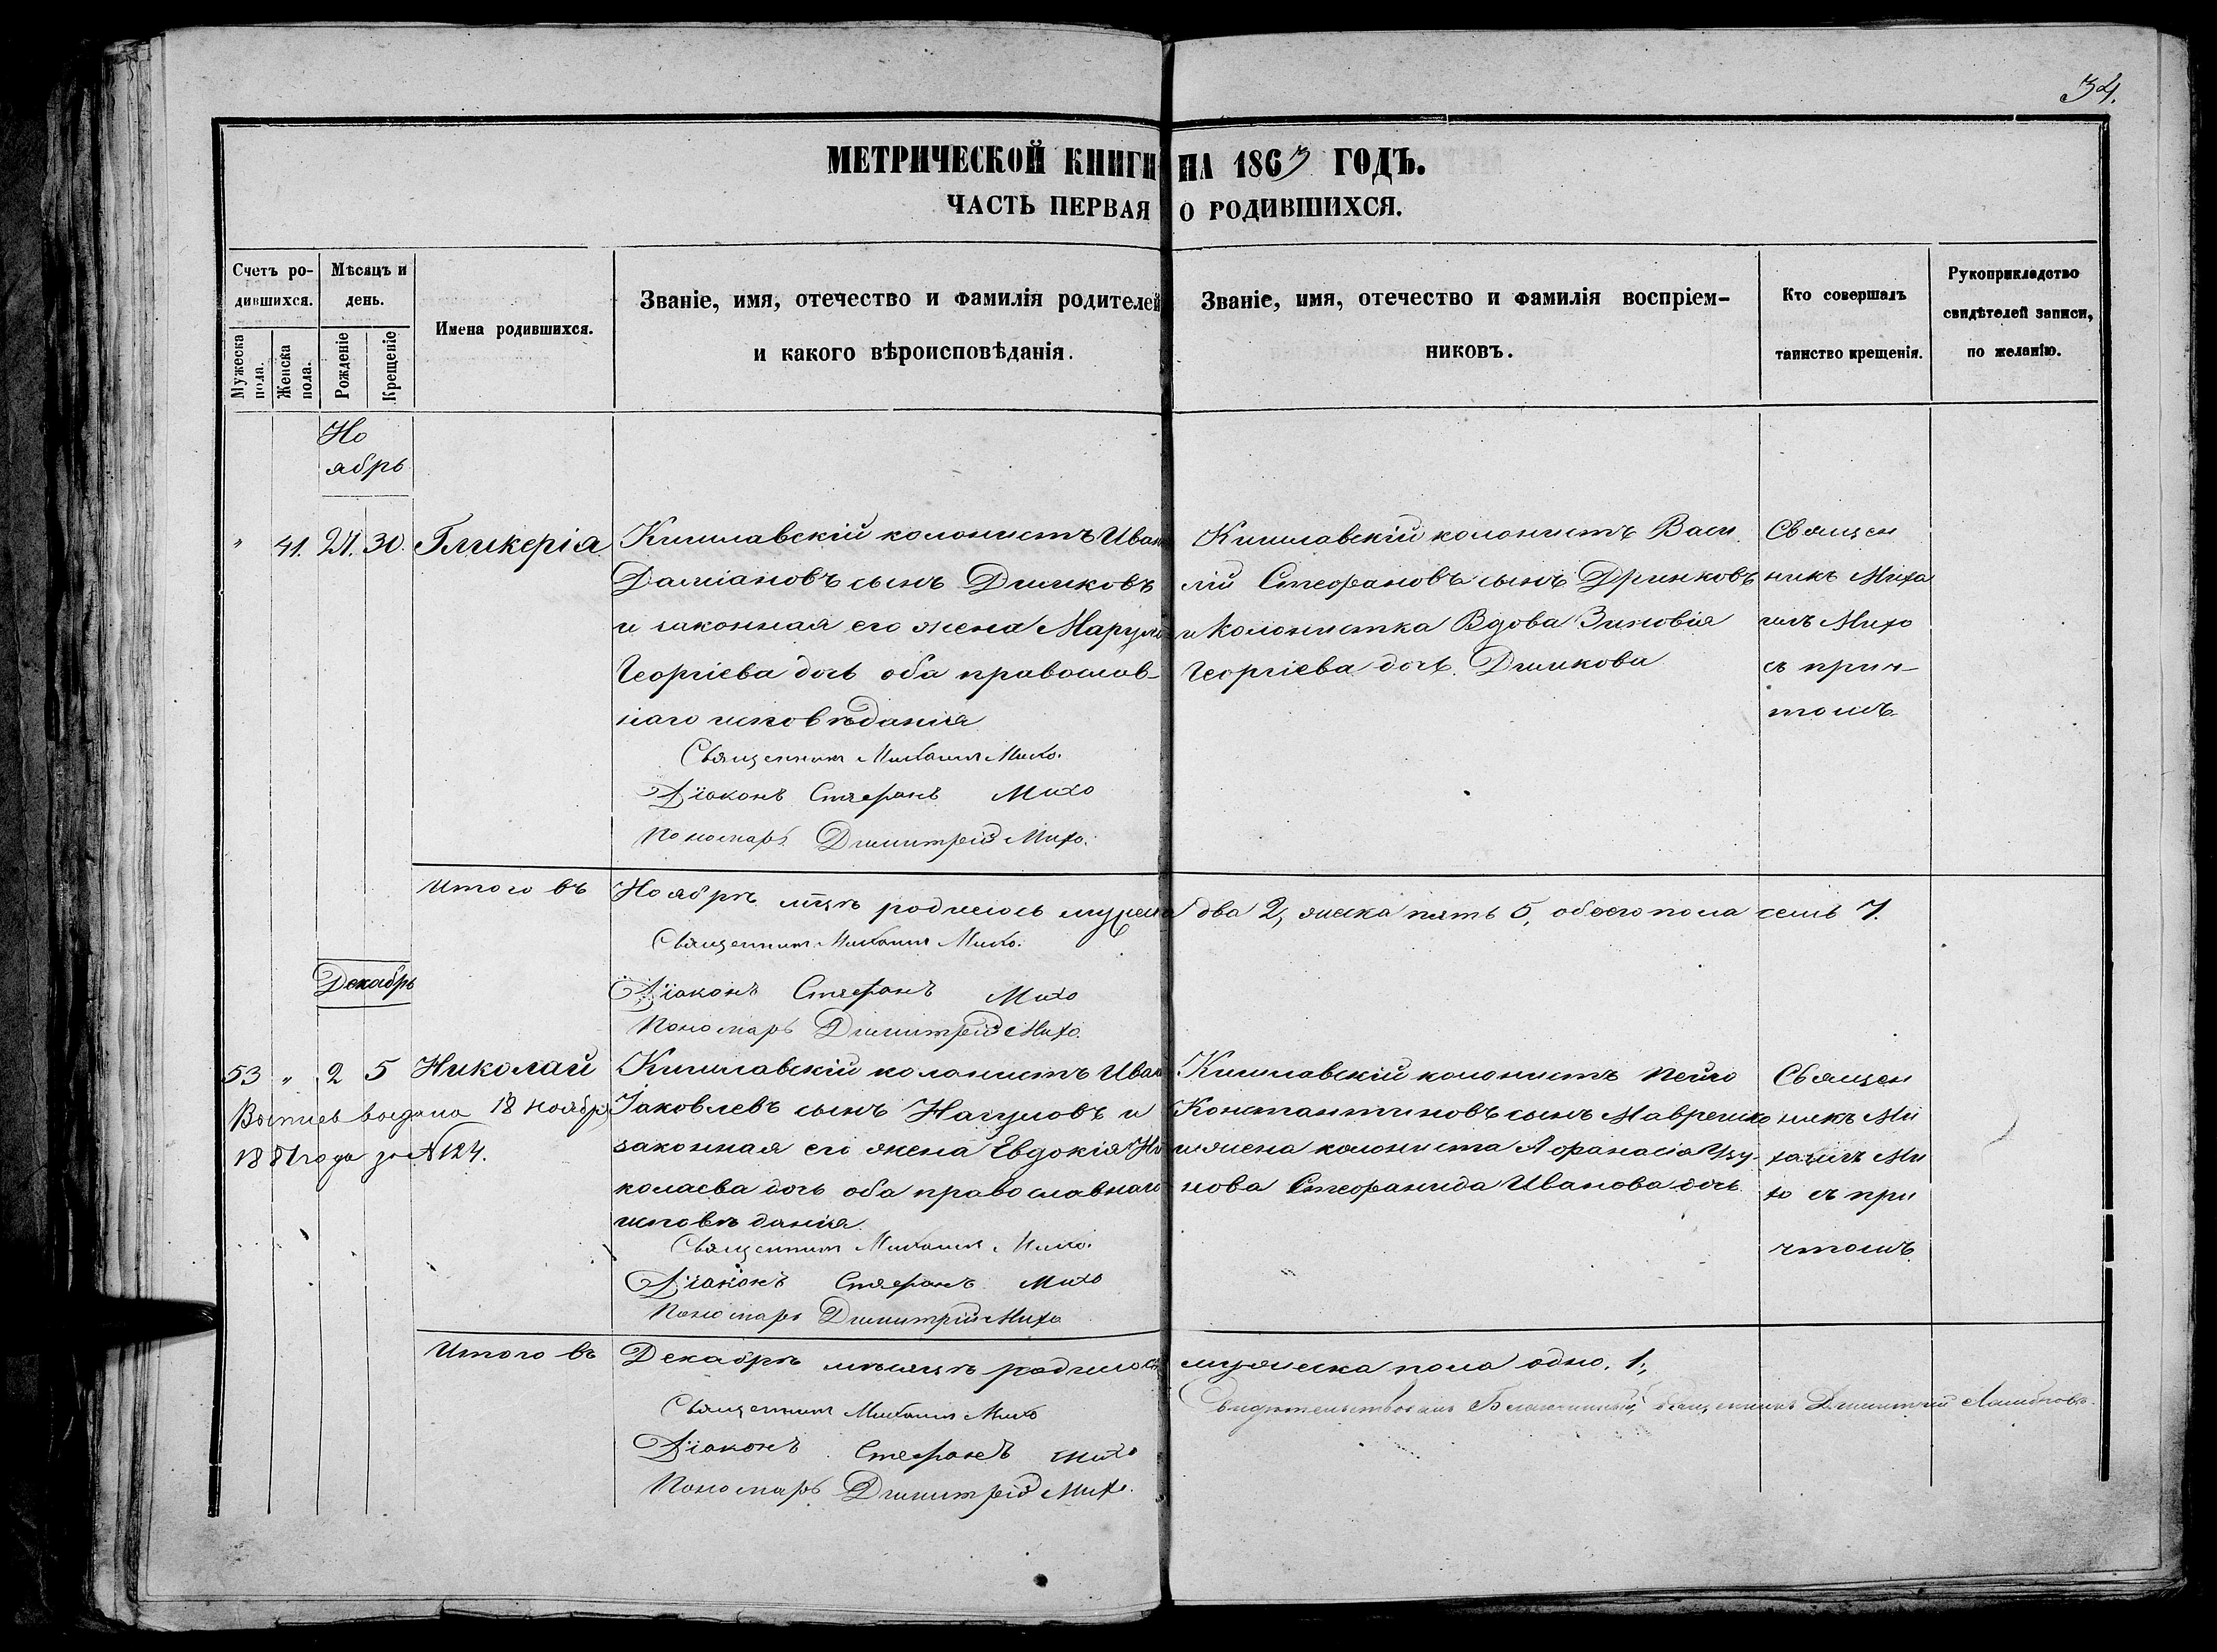 34.
МЕТРИЧЕСКОЙ КНИГИ НА 1863 ГОДЪ.
ЧАСТЬ ПЕРВАЯ О РОДИВШИХСЯ.
Счетъ ро-
дившихся.
Мужеска пола.
Женска пола.
Мѣсяцъ и
день.
Рожденіе
Крещеніе
Имена родившихся.
Званіе, имя, отечество и фамилія родителей
и какого вѣроисповѣданія.
Званіе, имя, отечество и фамилія воспріем-
никовъ.
Кто совершалъ
таинство крещенія.
Рукоприкладство
свидѣтелей записи,
по желанію.
Но
ябрь
" 41. 21. 30. Гликерія
Кишлавскій колонистъ Иванъ
Даміановъ сынъ Димковъ
и законная его жена
Георгіева дочь оба православ-
наго исповѣданія
Священникъ Михаилъ Михо.
Діаконъ Стефанъ Михо
Пономарь Димитрій Михо.
Кишлавскій колонистъ Васи
лій Стефановъ сынъ Дринковъ
и колонистка Вдова Зиновія
Георгіева дочь Димкова
Священ
никъ Миха
илъ Михо
съ прич-
томъ
Итого въ Ноябрѣ мцѣ родилось мужеска два 2, женска пять 5, обоего пола семь 7.
Священникъ Михаилъ Михо.
Діаконъ Стефанъ Михо
Пономарь Димитрій Михо.
Декабрь
53 " 2 5 Николай
выдана 18 ноября
1881 года за № 124.
Кишлавскій колонистъ Иван
Іаковлевъ сынъ Нагуловъ и
законная его жена Евдокія Ни
колаева дочь оба православнаго
исповѣданія
Священникъ Михаилъ Михо.
Діаконъ Стефанъ Михо
Пономарь Димитрій Михо
Кишлавскій колонистъ Пейчо
Константиновъ сынъ
и жена колониста Афанасія
нова Стефанида Иванова дочь
Священ
никъ Ми
хаилъ Ми
хо съ при
чтомъ
Итого въ Декабрѣ мѣсяцѣ родилось мужеска пола одно. 1.,
Священникъ Михаилъ Михо
Діаконъ Стефанъ Михо
Пономарь Димитрій Михо.
Свидѣтельствовалъ Благочинный Священникъ Димитрій